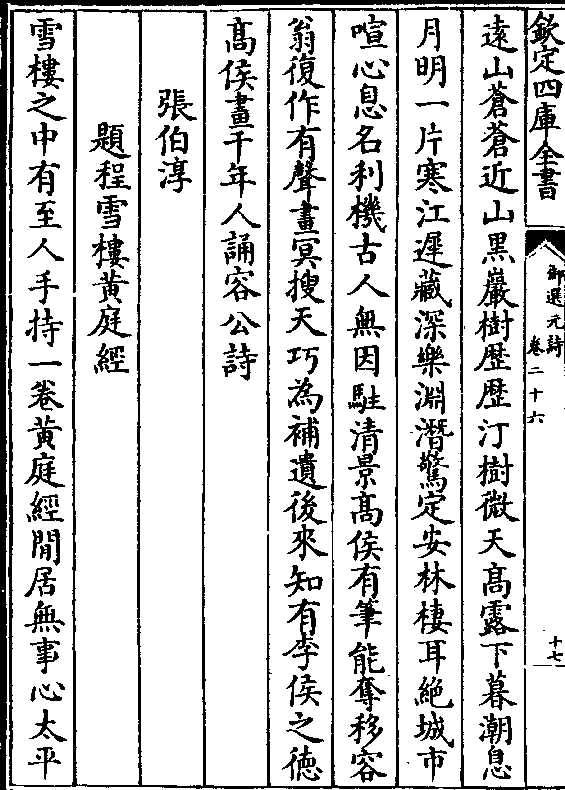 欽定四庫全書
御選元詩
卷二十六
十七
遠山蒼蒼近山黑巖樹歴歴汀樹微天髙露下暮潮息
月明一片寒江遲藏深樂淵潛驚定安林棲耳絶城市
喧心息名利機古人無因駐清景髙侯有筆能奪移容
翁復作有聲畫冥搜天巧為補遺後來知有李侯之徳
髙侯畫千年人誦容公詩
張伯淳
題程雪樓黄庭經
雪樓之中有至人手持一卷黄庭經閒居無事心太平